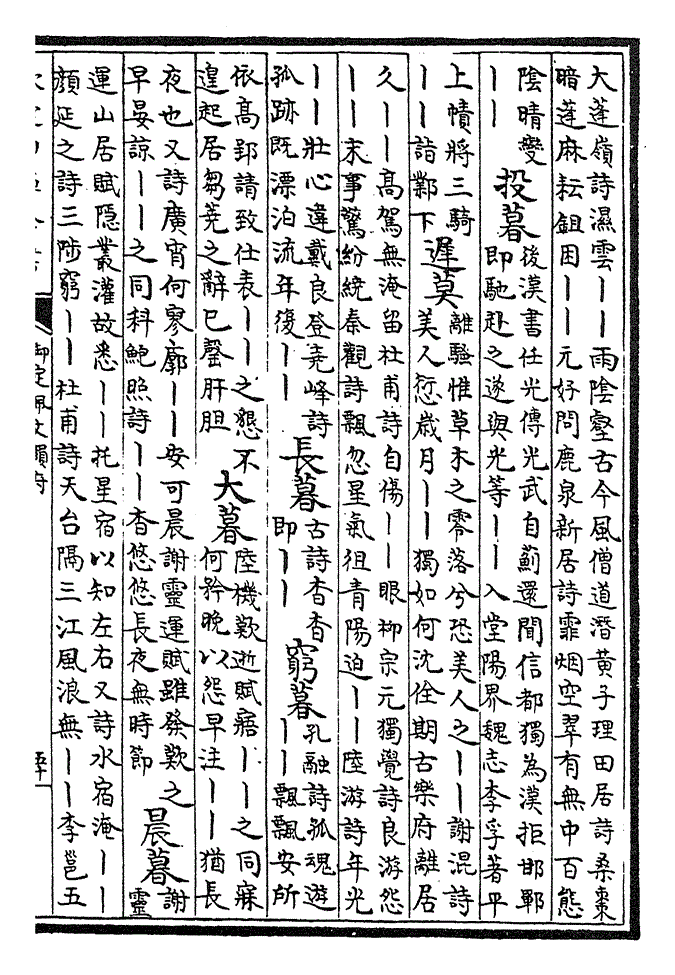 大蓬嶺詩濕雲丨丨雨陰壑古今風僧道潛黄子理田居詩桑棗
暗蓬麻耘鉏困丨丨元好問鹿泉新居詩霏烟空翠有無中百態
陰晴變
丨丨
投暮
後漢書任光傳光武自薊還聞信都獨為漢拒邯鄲
即馳赴之遂與光等丨丨入堂陽界魏志李孚著平
上幘將三騎
丨丨詣鄴下
遲莫
離騷惟草木之零落兮恐美人之丨丨謝混詩
美人愆歲月丨丨獨如何沈佺期古樂府離居
久丨丨高駕無淹留杜甫詩自傷丨丨眼柳宗元獨覺詩良游怨
丨丨末事驚紛繞秦觀詩飄忽星氣徂青陽迫丨丨陸游詩年光
丨丨壯心違戴良登堯峰詩
孤跡既漂泊流年復丨丨
長暮
古詩杳杳
即丨丨
窮暮
孔融詩孤魂遊
丨丨飄飄安所
依高郢請致仕表丨丨之懇不
遑起居芻蕘之辭已罄肝胆
大暮
陸機歎逝賦寤丨丨之同寐
何矜晚以怨早注丨丨猶長
夜也又詩廣宵何寥廓丨丨安可晨謝靈運賦雖發歎之
早晏諒丨丨之同科鮑照詩丨丨杳悠悠長夜無時節
晨暮
謝
靈
運山居賦隱叢灌故悉丨丨托星宿以知左右又詩水宿淹丨丨
顏延之詩三陟窮丨丨杜甫詩天台隔三江風浪無丨丨李邕五
御定佩文韻府